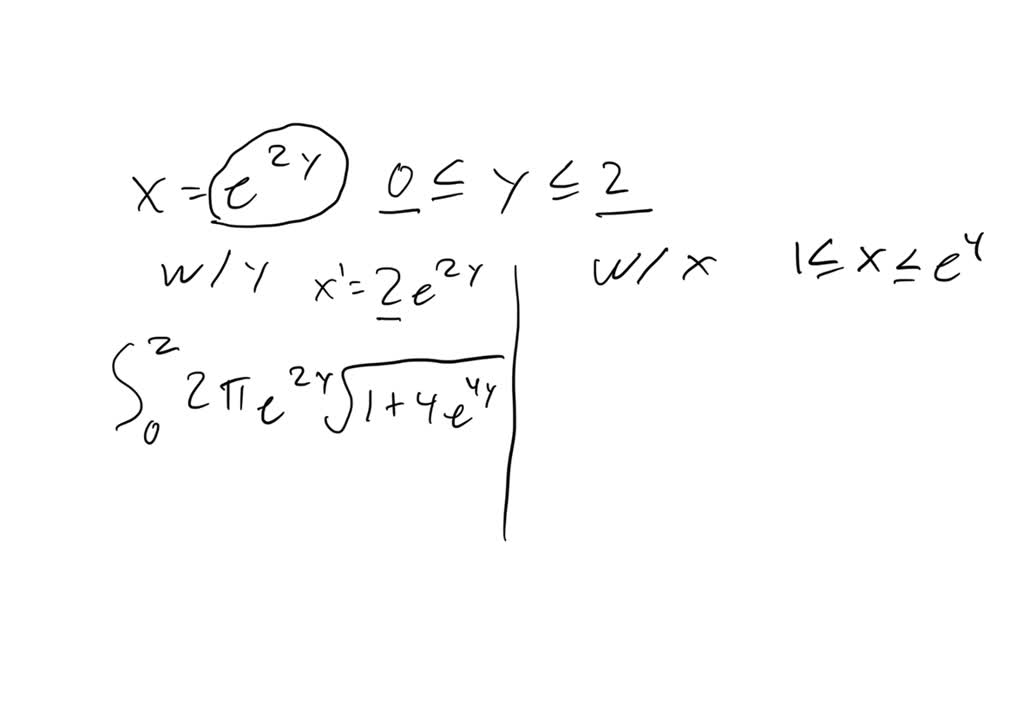 x = e^{2y} 0 ≤ y ≤ 2
w/y x' = 2e^{2y}
∫_0^2 2πe^{2y}√(1+4e^{4y})
w/x 1 ≤ x ≤ e^4